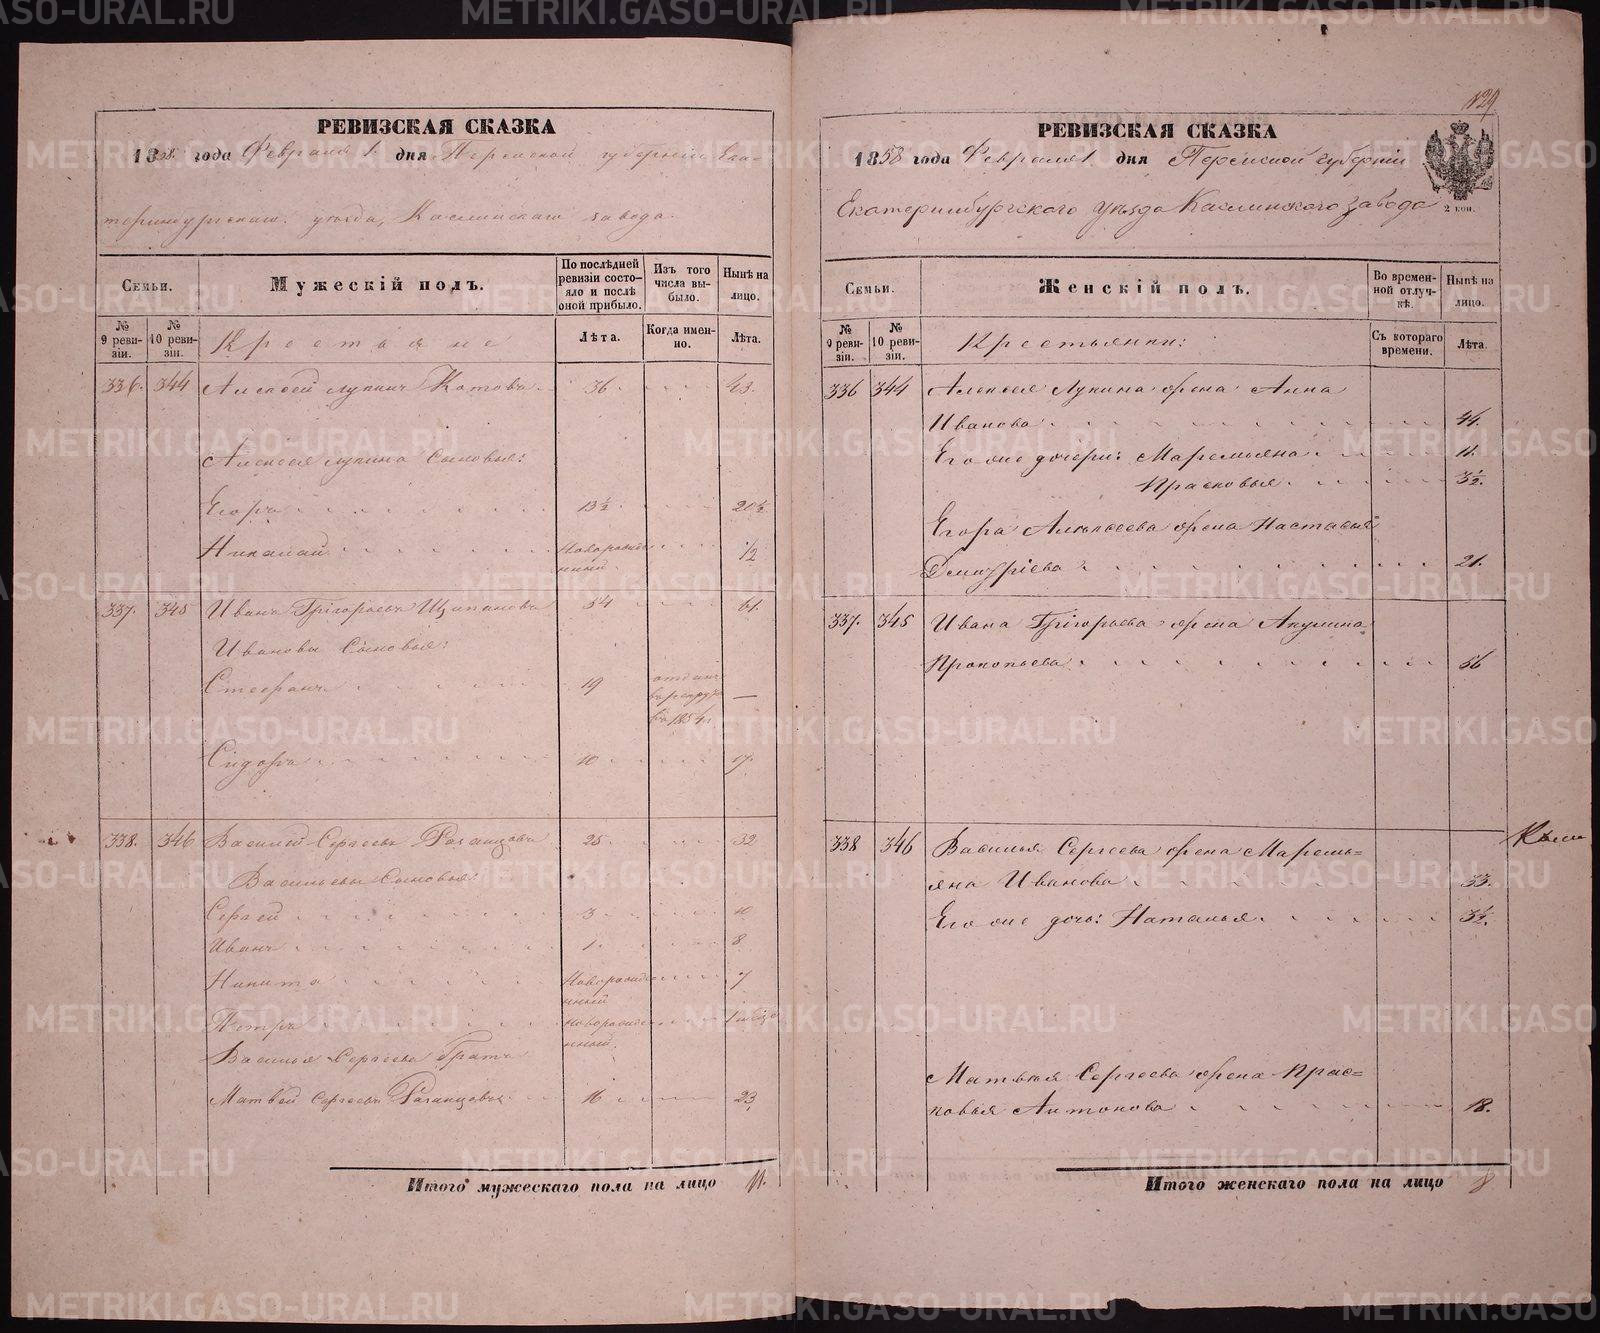 РЕВИЗСКАЯ СКАЗКА
1858 года Февраля 1 дня Пермской губернiи Ека-
теринбургскаго уѣзда, Каслинскаго завода.
Семьи.
Мужескiй полъ.
По послѣдней ревизiи состояло и послѣ оной прибыло.
Изъ того числа выбыло.
Нынѣ на лицо.
№ 9 ревизiи.
№ 10 ревизiи.
Крестьяне
Лѣта.
Когда именно.
Лѣта.
336. 344 Алексѣй Лукинъ Котовъ 36 43.
Алексѣя Лукина Сыновья:
Егоръ 13½ 20½
Николай Новорожденный ½
337. 345 Иванъ Григорьевъ Щипановъ 54 61.
Ивановы Сыновья:
Стефанъ 19 отданъ въ рекруты въ 1854 г. —
Сидоръ 10 17.
338. 346 Василiй Сергѣевъ 25 32
Васильевы Сыновья:
Сергѣй 3 10
Иванъ 1 8
Никита Новорожденный 7
Петръ новорожденный.
Василья Сергѣева Братъ
Матвѣй Сергѣевъ 16 23.
Итого мужескаго пола на лицо 11.
129
РЕВИЗСКАЯ СКАЗКА
1858 года Февраля 1 дня Пермской губернiи
Екатеринбургского уѣзда Каслинского завода
2 коп.
Семьи.
Женскiй полъ.
Во временной отлучкѣ.
Нынѣ на лицо.
№ 9 ревизiи.
№ 10 ревизiи.
Крестьянки:
Съ котораго времени.
Лѣта.
336 344 Алексѣя Лукина жена Анна
Иванова 44.
Его оне дочери: Маремьяна 11.
Прасковья 3½
Егора Алексѣева жена Настасья
Дмитрiева 21.
337. 345 Ивана Григорьева жена Акулина
Прокопьева 56
338 346 Василья Сергѣева жена Маремь=
яна Иванова 33.
Его оне дочь: Наталья 3½.
Матвѣя Сергѣева жена Прас=
ковья Антонова 18.
Итого женскаго пола на лицо 8
METRIKI.GASO-URAL.RU